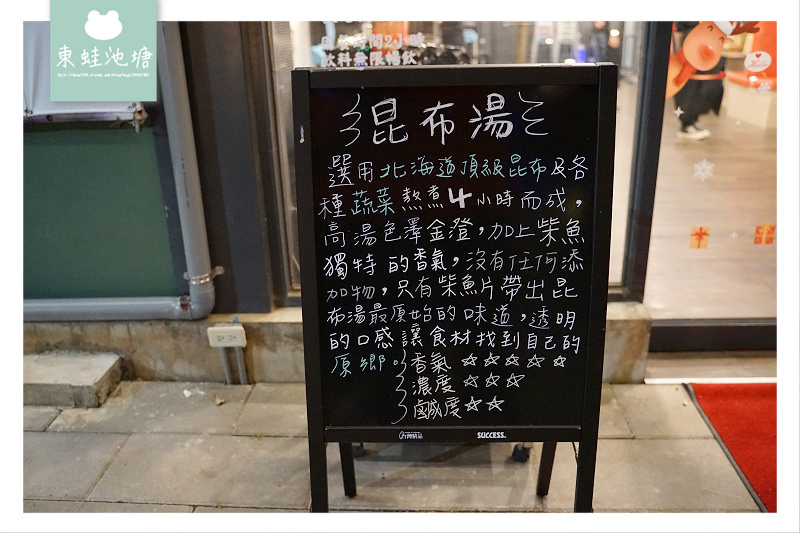 東蛙池塘
用餐時間2小時
飲料無限暢飲
昆布湯
選用北海道頂級昆布及各
種蔬菜熬煮4小時而成，
高湯色澤金澄，加上柴魚
獨特的香氣，沒有任何添
加物，只有柴魚片帶出昆
布湯最原始的味道，透明
的口感讓食材找到自己的
原鄉。
香氣☆☆☆☆☆
濃度☆☆☆
鹹度☆☆
SUCCESS.